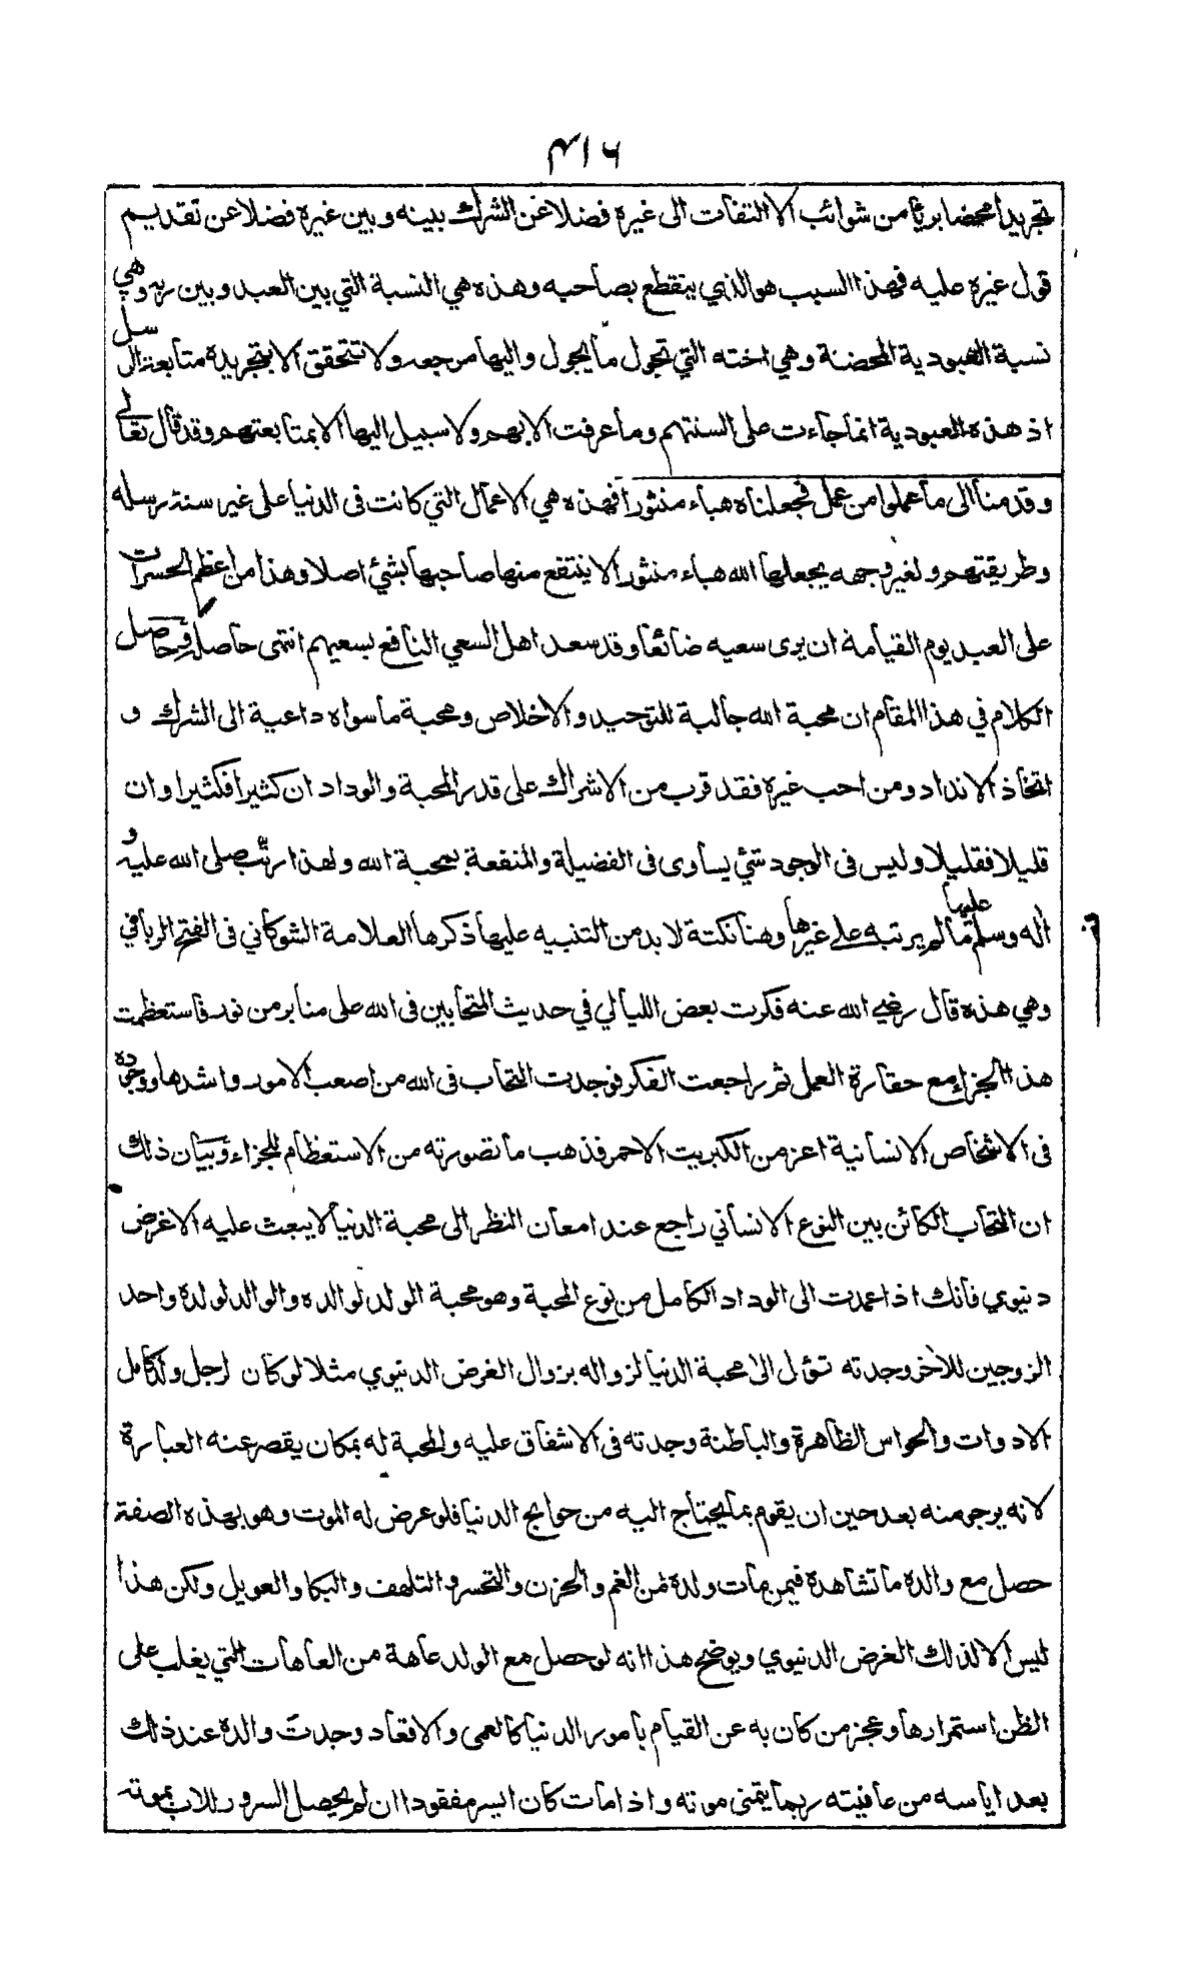 ٤١٦
تجريدا محضا بريئا من شوائب الالتفات الى غيره فضلا عن الشرك بينه وبين غيره فضلا عن تقديم
قول غيره عليه فهذا السبب هو الذي ينقطع بصاحبه وهذه هي النسبة التي بين العبد وبين ربه وهي
نسبة العبودية المحضة وهي اخته التي تجول ما يجول واليها مرجعه ولا تتحقق الا بتجريده متابعة الرسل
اذ هذه العبودية انما جاءت على السنتهم وما عرفت الا بهم ولا سبيل اليها الا بمتابعتهم وقد قال تعالى
وقدمنا الى ما عملوا من عمل فجعلناه هباء منثورا فهذه هي الاعمال التي كانت فى الدنيا على غير سنة رسله
وطريقتهم ولغير وجهه يجعلها الله هباء منثورا لا ينتفع منها صاحبها بشئ اصلا وهذا من اعظم الحسرات
على العبد يوم القيامة ان يرى سعيه ضائعا وقد سعد اهل السعي النافع بسعيهم انتهى حاصله وحاصل
الكلام في هذا المقام ان محبة الله جالبة للتوحيد والاخلاص ومحبة ما سواه داعية الى الشرك و
اتخاذ الانداد ومن احب غيره فقد قرب من الاشراك على قدر المحبة والوداد ان كثيرا فكثيرا وان
قليلا فقليلا وليس فى الوجود شئ يساوى فى الفضيلة والمنفعة بمحبة الله ولهذا رتب صلى الله عليه و
اله وسلم عليها ما لم يرتبه على غيرها وهنا نكتة لا بد من التنبيه عليها ذكرها العلامة الشوكاني فى الفتح الرباني
وهي هذه قال رضي الله عنه فكرت بعض الليالي في حديث المتحابين فى الله على منابر من نور فاستعظمت
هذا الجزاء مع حقارة العمل ثم راجعت الفكر فوجدت التحاب فى الله من اصعب الامور واشدها ووجوده
فى الاشخاص الانسانية اعز من الكبريت الاحمر فذهب ما تصورته من الاستعظام للجزاء وبيان ذلك
ان التحاب الكائن بين النوع الانساني راجع عند امعان النظر الى محبة الدنيا لا يبعث عليه الا غرض
دنيوي فانك اذا عمدت الى الوداد الكامل من نوع المحبة وهو محبة الولد لوالده والوالد لولده واحد
الزوجين للاخر وجدته تؤل الى محبة الدنيا لزواله بزوال الغرض الدنيوي مثلا لو كان لرجل ولد كامل
الادوات والحواس الظاهرة والباطنة وجدته فى الاشفاق عليه والمحبة له بمكان يقصر عنه العبارة
لانه يرجو منه بعد حين ان يقوم بما يحتاج اليه من حوايج الدنيا فلو عرض له الموت وهو بهذه الصفة
حصل مع والده ما تشاهده فيمن مات ولده من الغم والحزن والتحسر والتلهف والبكا والعويل ولكن هذا
ليس الا لذلك الغرض الدنيوي ويوضح هذا انه لو حصل مع الولد عاهة من العاهات التي يغلب على
الظن استمرارها وعجز من كان به عن القيام بامور الدنيا كالعمى والاقعاد وجدت والده عند ذلك
بعد اياسه من عافيته ربما يتمنى موته واذا مات كان ايسر مفقود ان لم يحصل السرور للاب بموته